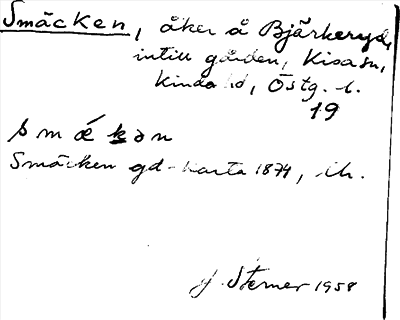 Smäcken, åker å Bjärkeryd,
intill gården, Kisa sn,
Kinda hd, Östg. l.
19
smækən
Smäcken gd-karta 1874, ih.
J. Sterner 1958